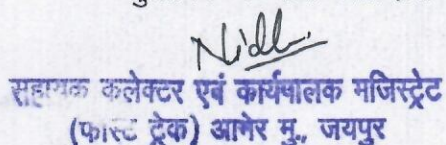 Nidhi
सहायक कलेक्टर एवं कार्यपालक मजिस्ट्रेट
(फास्ट ट्रेक) आमेर मु., जयपुर